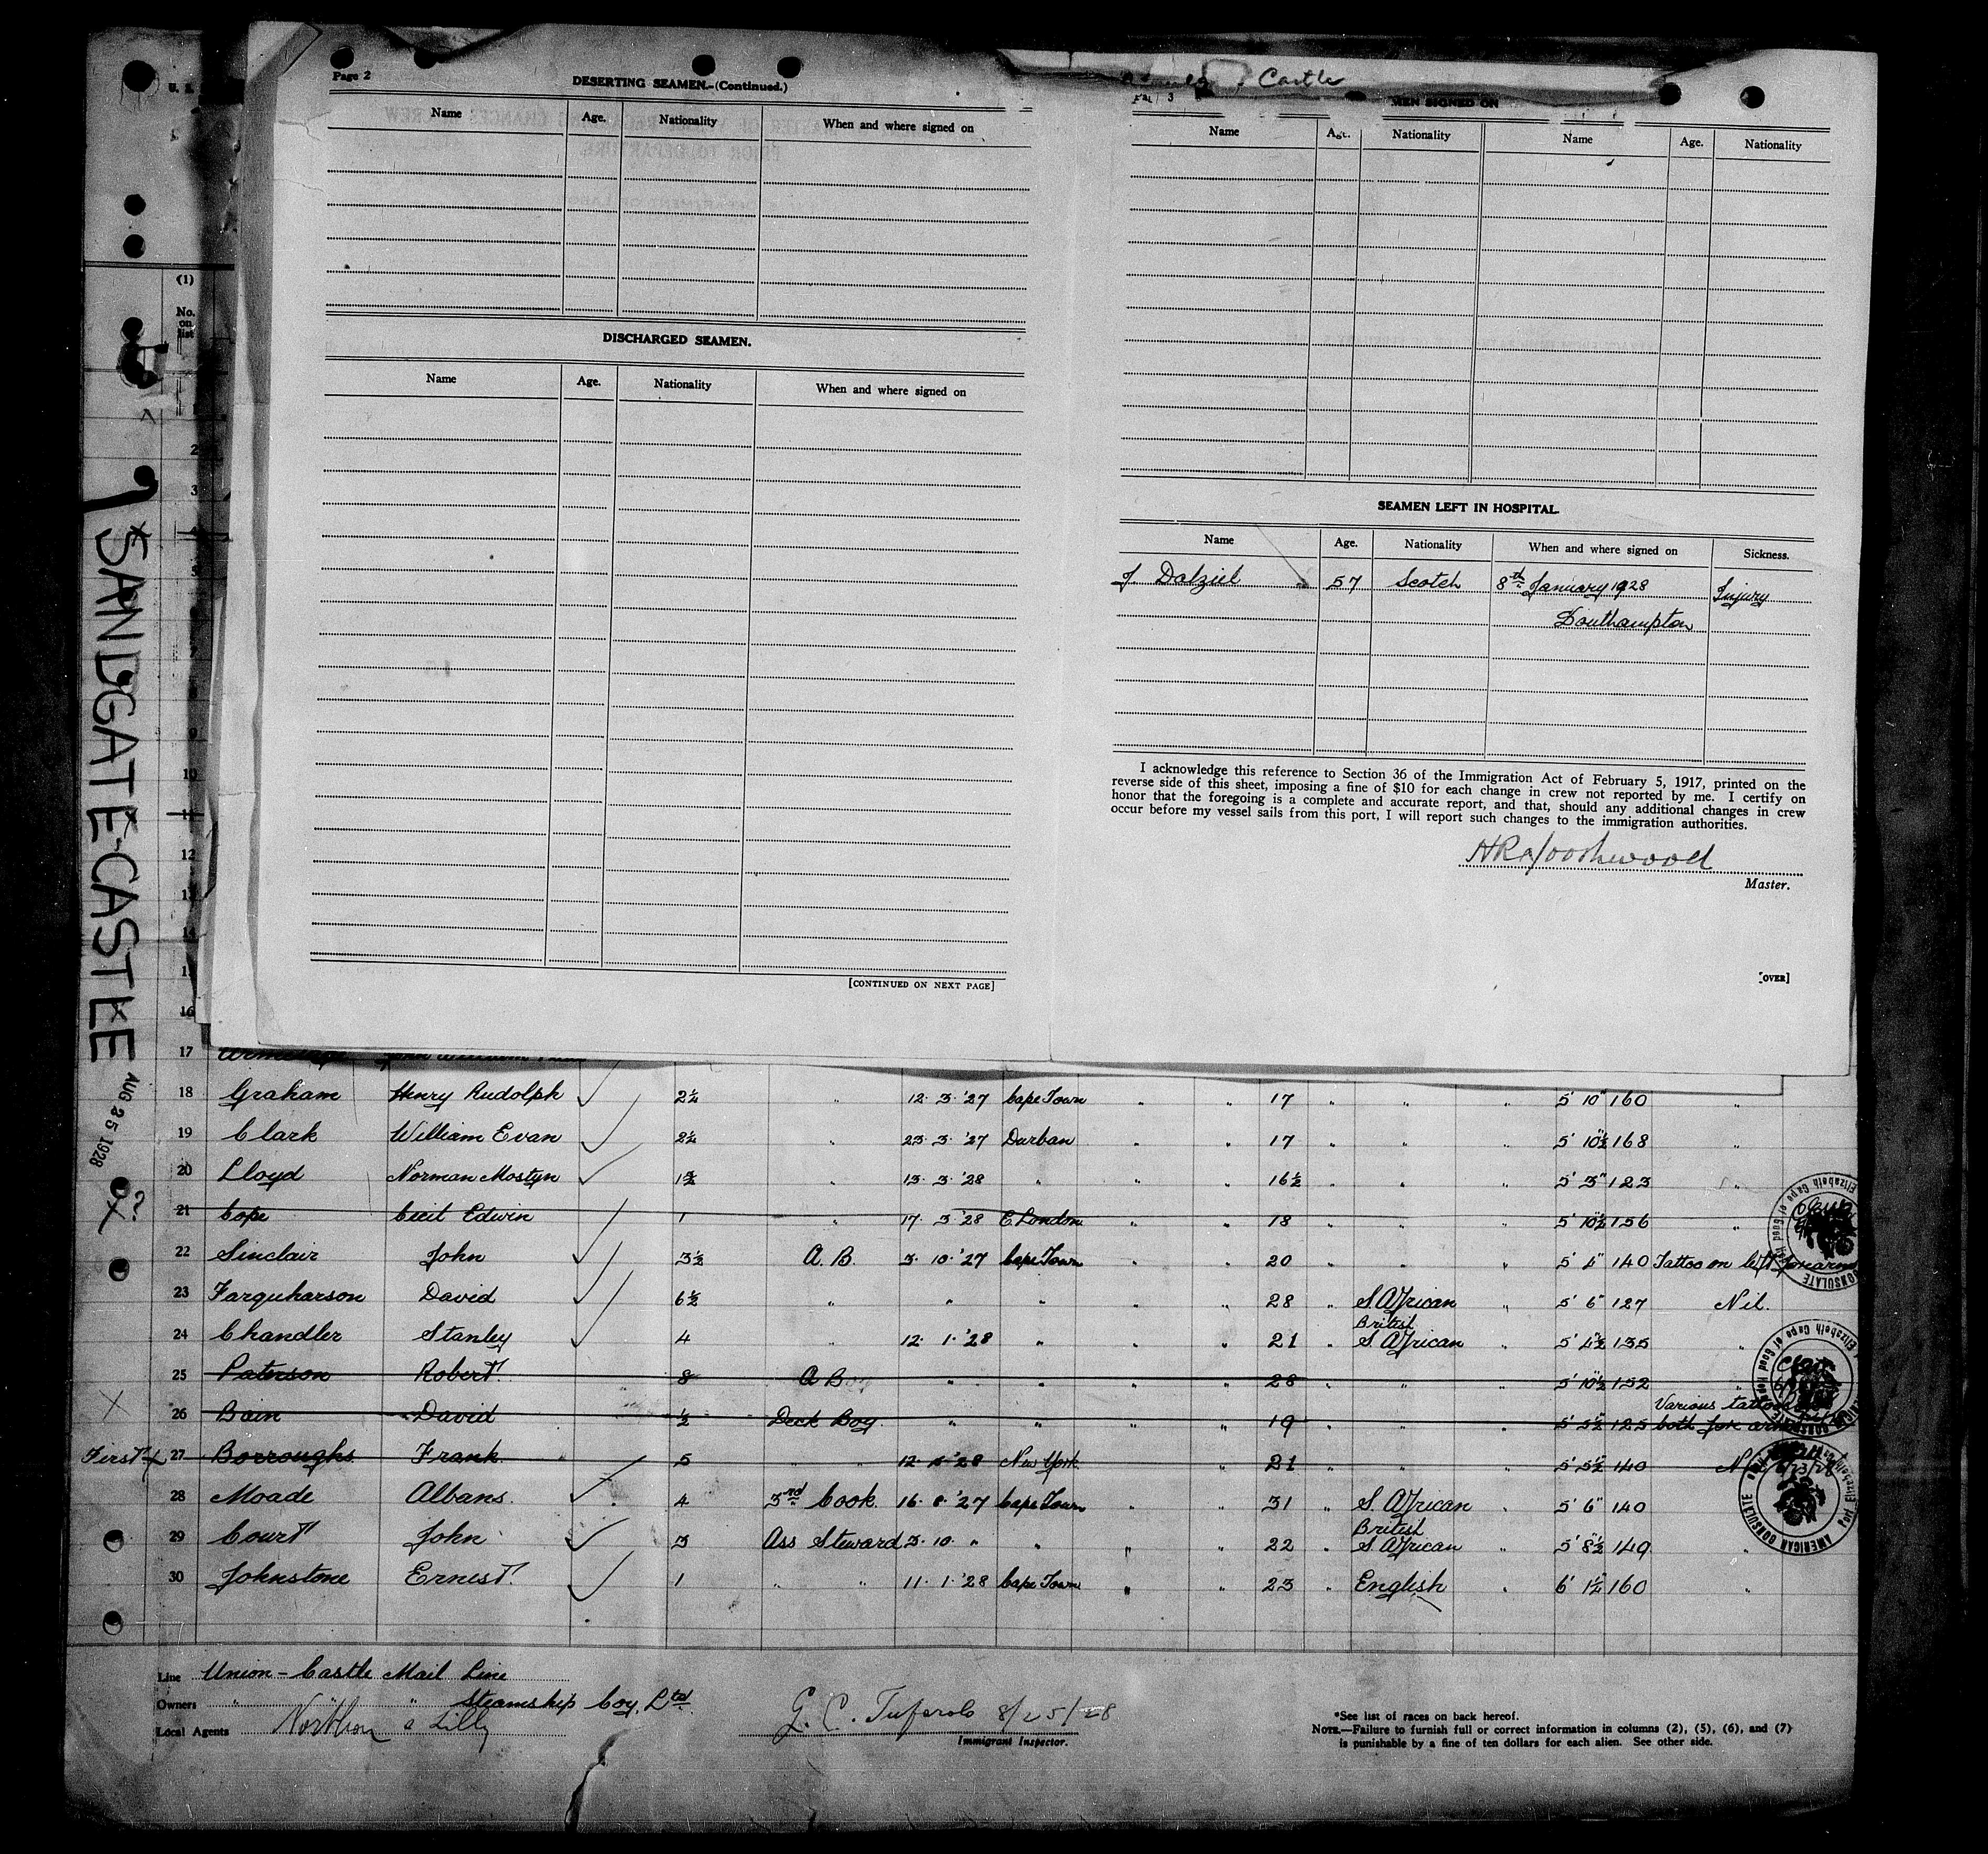 Page 2
DESERTING SEAMEN.-(Continued.)
Name Age. Nationality When and where signed on
DISCHARGED SEAMEN.
Name Age. Nationality When and where signed on
[CONTINUED ON NEXT PAGE]
Castle
3
MEN SIGNED ON
Name Age. Nationality Name Age. Nationality
SEAMEN LEFT IN HOSPITAL.
Name Age. Nationality When and where signed on Sickness.
J. Dalziel 57 Scotch 8th January 1928 Injury
Southampton
I acknowledge this reference to Section 36 of the Immigration Act of February 5, 1917, printed on the
reverse side of this sheet, imposing a fine of $10 for each change in crew not reported by me. I certify on
honor that the foregoing is a complete and accurate report, and that, should any additional changes in crew
occur before my vessel sails from this port, I will report such changes to the immigration authorities.
Master.
[OVER]
U. S.
(1)
No.
on
list
1
2
3
4
5
7
8
9
10
11
12
13
14
15
16
SANDGATE-CASTLE
AUG 25 1928
17
18 Graham Henry Rudolph 2¼ " 12. 3. '27 Cape Town " " 17 " " " 5' 10" 160 "
19 Clark William Evan 2¼ " 23. 3. '27 Durban " " 17 " " " 5' 10½" 168 "
20 Lloyd Norman Mostyn 1½ " 13. 3. '28 " " " 16½ " " " 5' 3" 123 "
21 Cope Cecil Edwin 1 " 17. 3. '28 E. London " " 18 " " " 5' 10½" 156 "
22 Sinclair John 3½ A. B. 3. 10. '27 Cape Town " " 20 " " " 5' 4" 140 Tattoo on left forearm
23 Farquharson David 6½ " " " " " 28 " S. African " 5' 6" 127 Nil.
British
24 Chandler Stanley 4 " 12. 1. '28 " " " 21 " S. African " 5' 4½" 135 "
25 Paterson Robert 8 A B " " " " 28 " " " 5' 10½" 152 "
Various tattoos
26 Bain David ½ Deck Boy " " " " 19 " " " 5' 5½" 125 both fore arms
First X 27 Borroughs Frank 5 " " 12. '28 New York " 21 " " " 5' 5½" 140
28 Moade Albans. 4 3rd Cook. 16. 8. '27 Cape Town " " 31 " S. African " 5' 6" 140
British
29 Court John 3 Ass Steward 3. 10. " " " " 22 " S. African 5' 8½" 149 "
30 Johnstone Ernest. 1 " " 11. 1. '28 Cape Town " " 23 " English " 6' 1½" 160 "
AMERICAN CONSULATE
Port Elizabeth Cape of Good Hope
Line Union-Castle Mail Line
Owners " " Steamship Coy. Ltd.
Local Agents Lilly
8/25/28
Immigrant Inspector.
*See list of races on back hereof.
NOTE.—Failure to furnish full or correct information in columns (2), (5), (6), and (7)
is punishable by a fine of ten dollars for each alien. See other side.